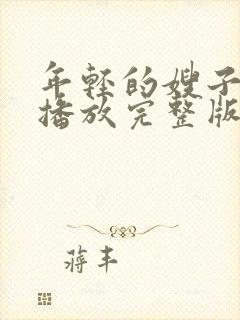 年轻的嫂子
播放完整版
蒋丰